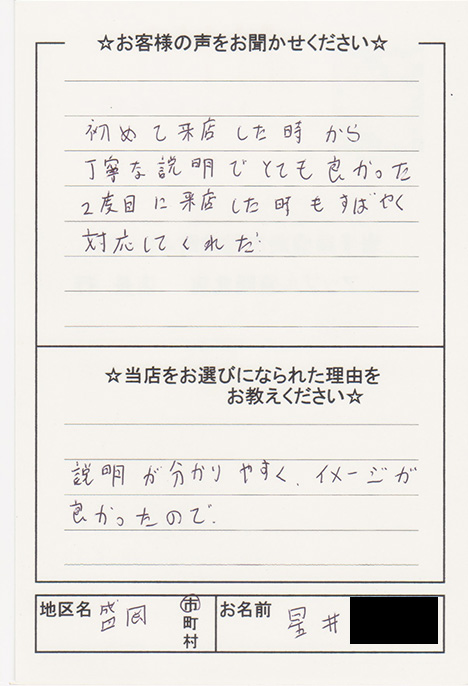 ☆お客様の声をお聞かせください☆
初めて来店した時から
丁寧な説明でとても良かった
2度目に来店した時もすばやく
対応してくれた
☆当店をお選びになられた理由を
お教えください☆
説明が分かりやすく、イメージが
良かったので。
地区名 盛岡 市町村 お名前 星井